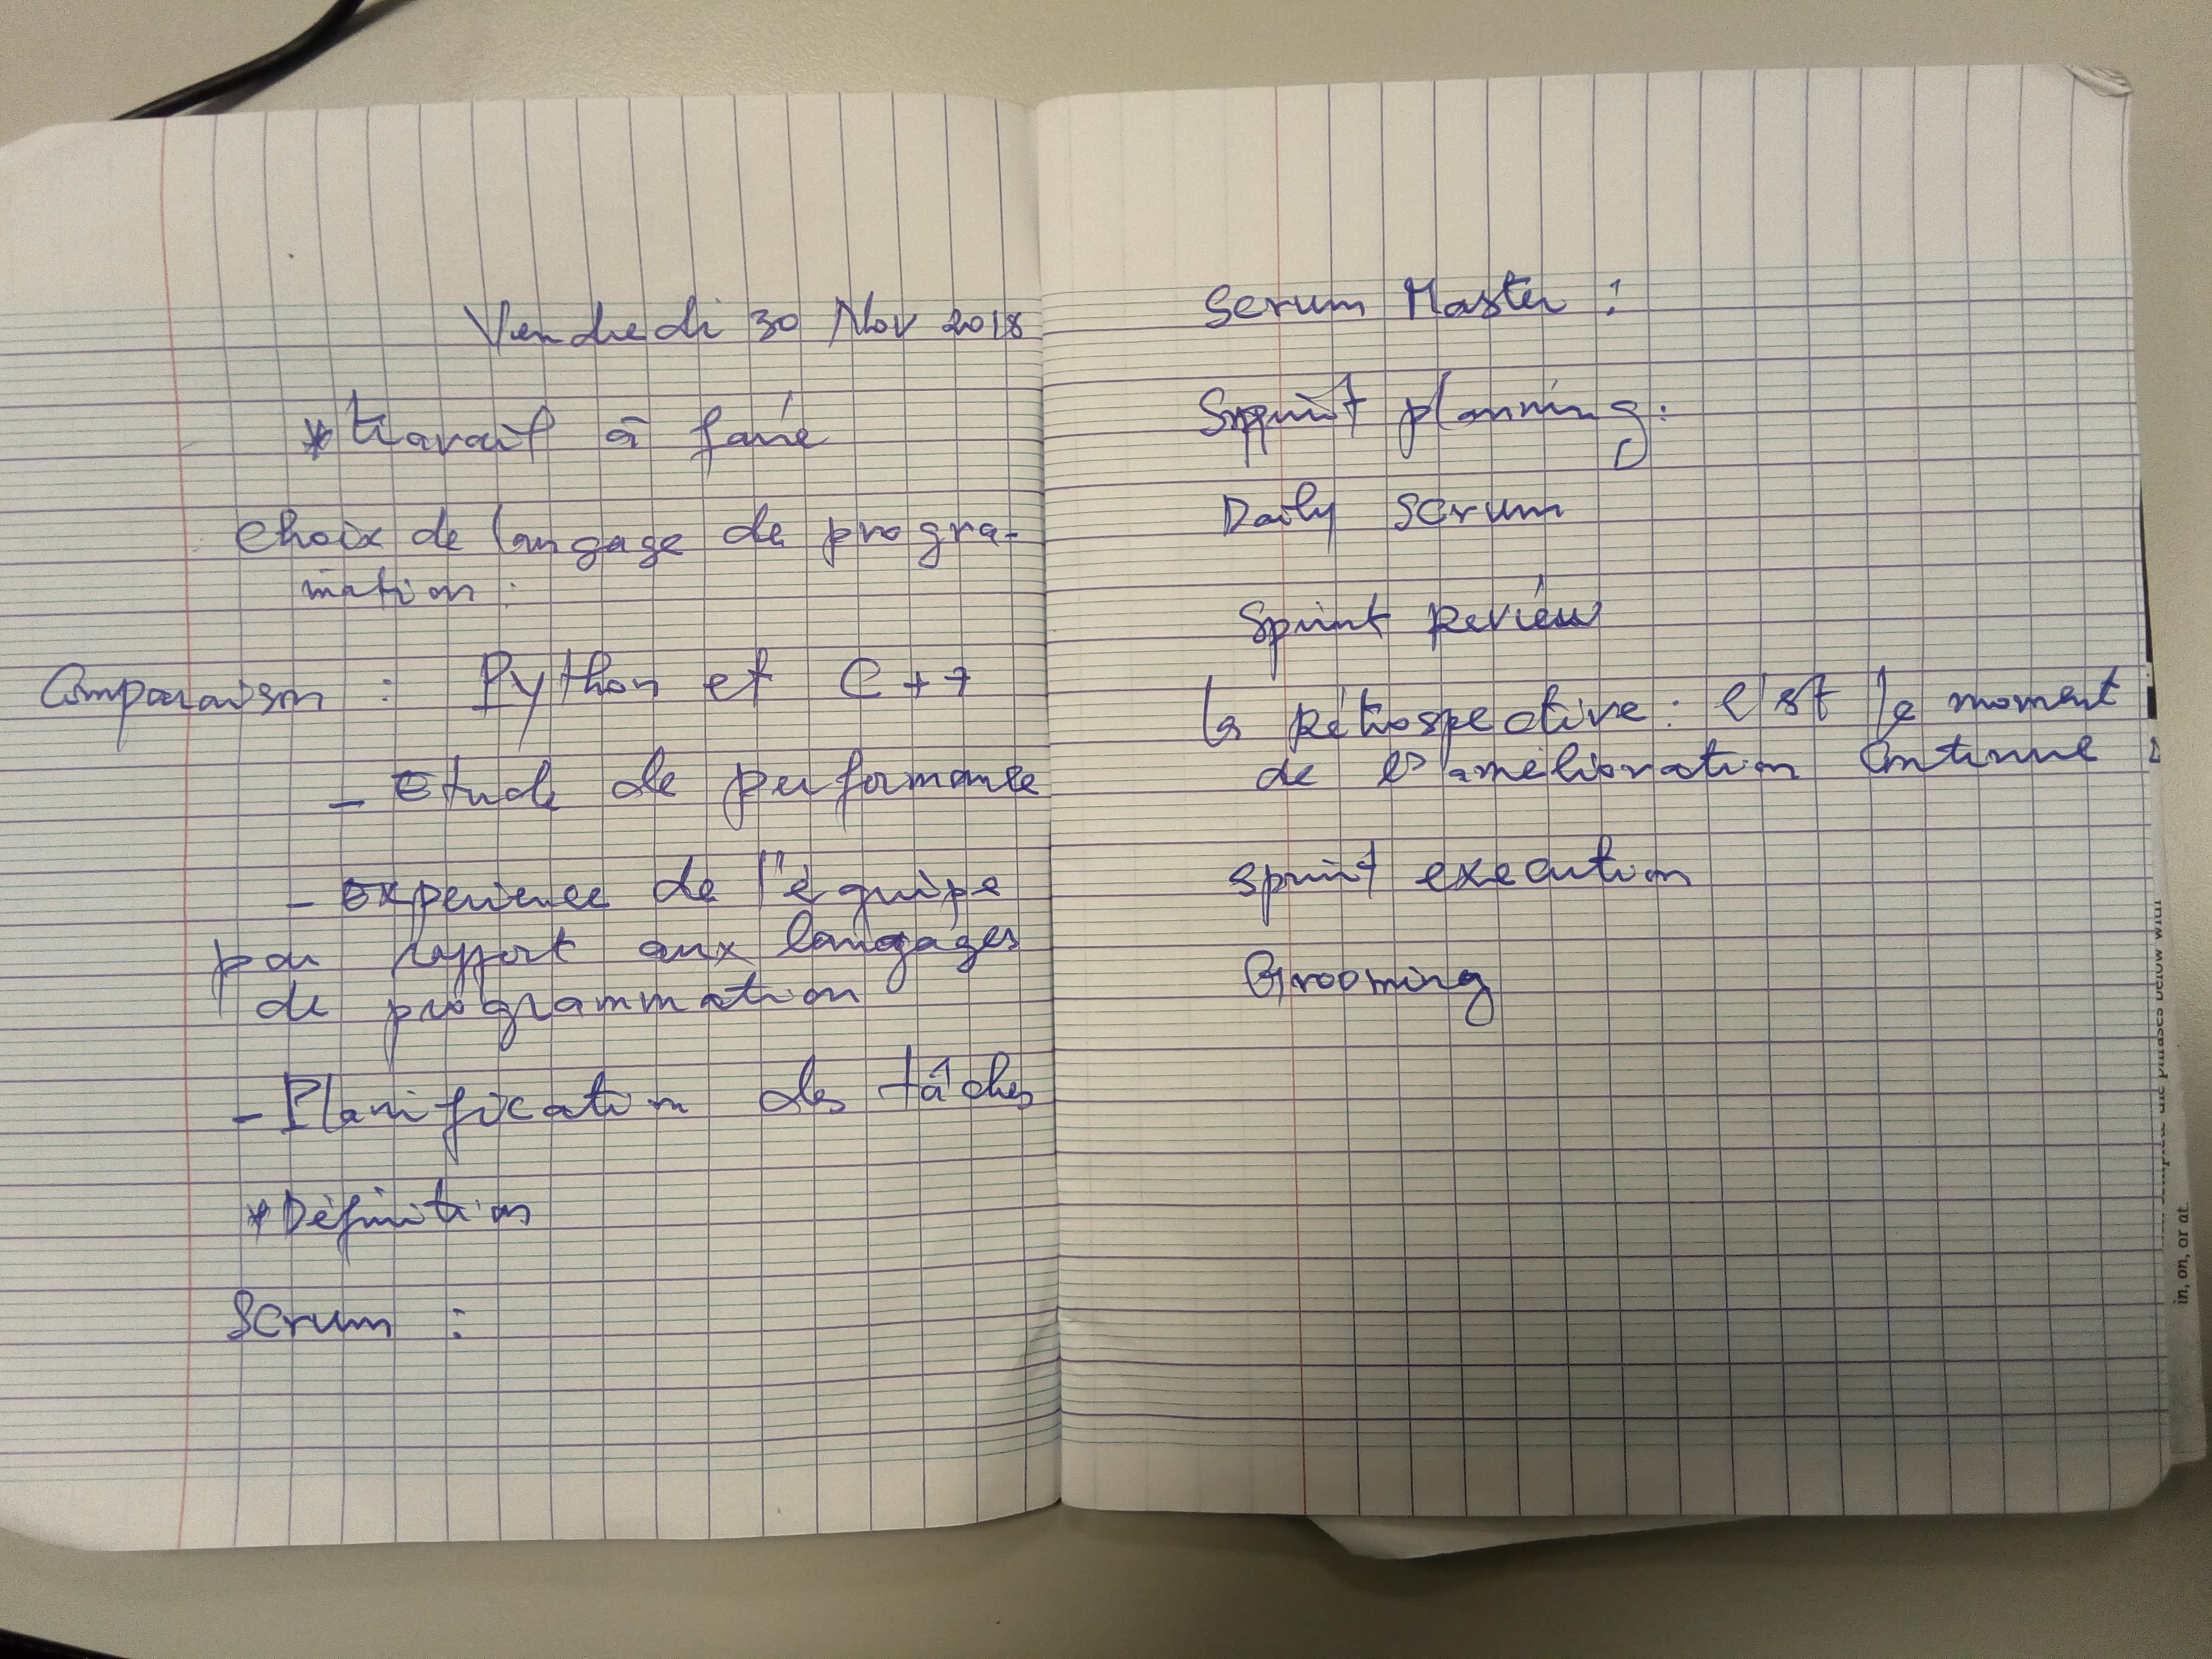 Vendredi 30 Nov 2018
*travail à faire
choix de langage de progra-
mation :
Comparaison : Python et C++
- Etude de performance
- Experience de l'équipe
par rapport aux langages
de programmation
- Planification des tâches
*Définition
Scrum :
Scrum Master :
Sprint planning :
Daily scrum
Sprint Review
la Rétrospective : c'est le moment
de l'amélioration continue
sprint execution
Grooming
in, on, or at.